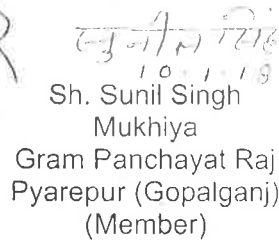 सुनील सिंह
10.1.18
Sh. Sunil Singh
Mukhiya
Gram Panchayat Raj
Pyarepur (Gopalganj)
(Member)